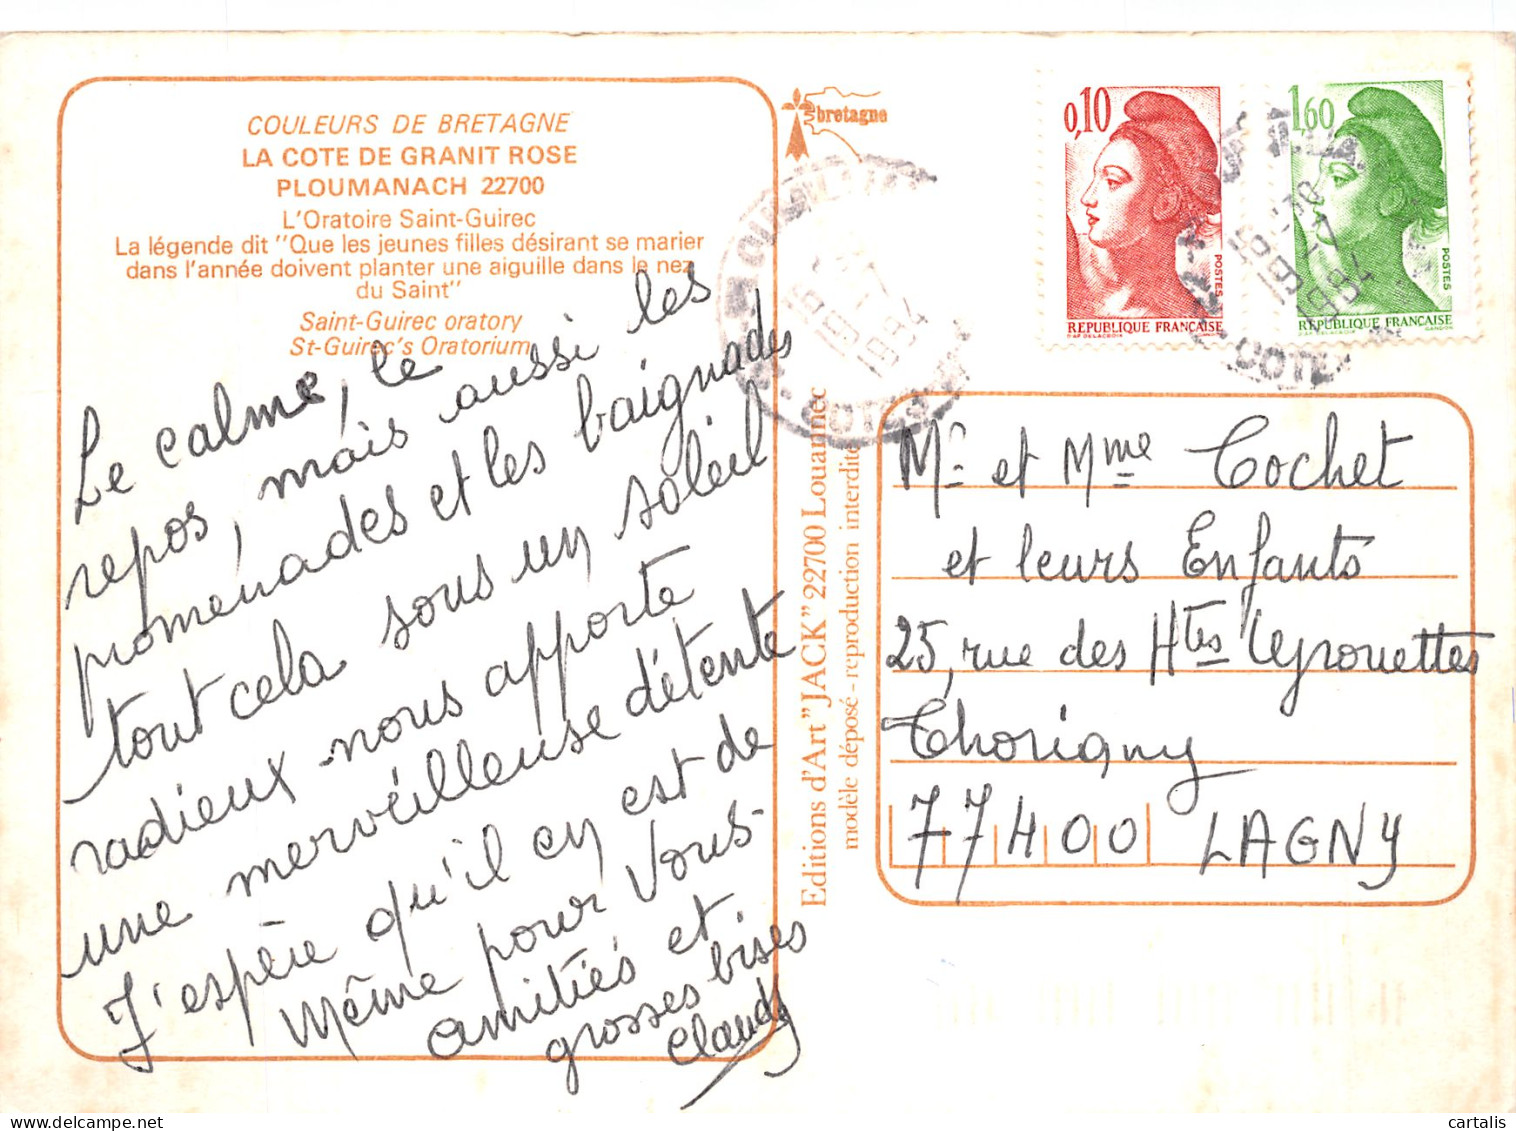 COULEURS DE BRETAGNE
LA COTE DE GRANIT ROSE
PLOUMANACH 22700
L'Oratoire Saint-Guirec
La légende dit "Que les jeunes filles désirant se marier
dans l'année doivent planter une aiguille dans le nez
du Saint"
Saint-Guirec oratory
St-Guirec's Oratorium
Le calme, le
repos, mais aussi les
promenades et les baignades
tout cela sous un soleil
radieux nous apporte
une merveilleuse détente
J'espère qu'il en est de
même pour vous.
amitiés et
grosses bises
Claude
bretagne
Editions d'Art "JACK" 22700 Louannec
modèle déposé - reproduction interdite
0,10
POSTES
REPUBLIQUE FRANÇAISE
D'AP. DELACROIX
GANDON
1,60
POSTES
REPUBLIQUE FRANÇAISE
D'AP. DELACROIX
GANDON
1984
1984
Mr et Mme Cochet
et leurs Enfants
25, rue des Htes
Thorigny
77400 LAGNY
cartalis